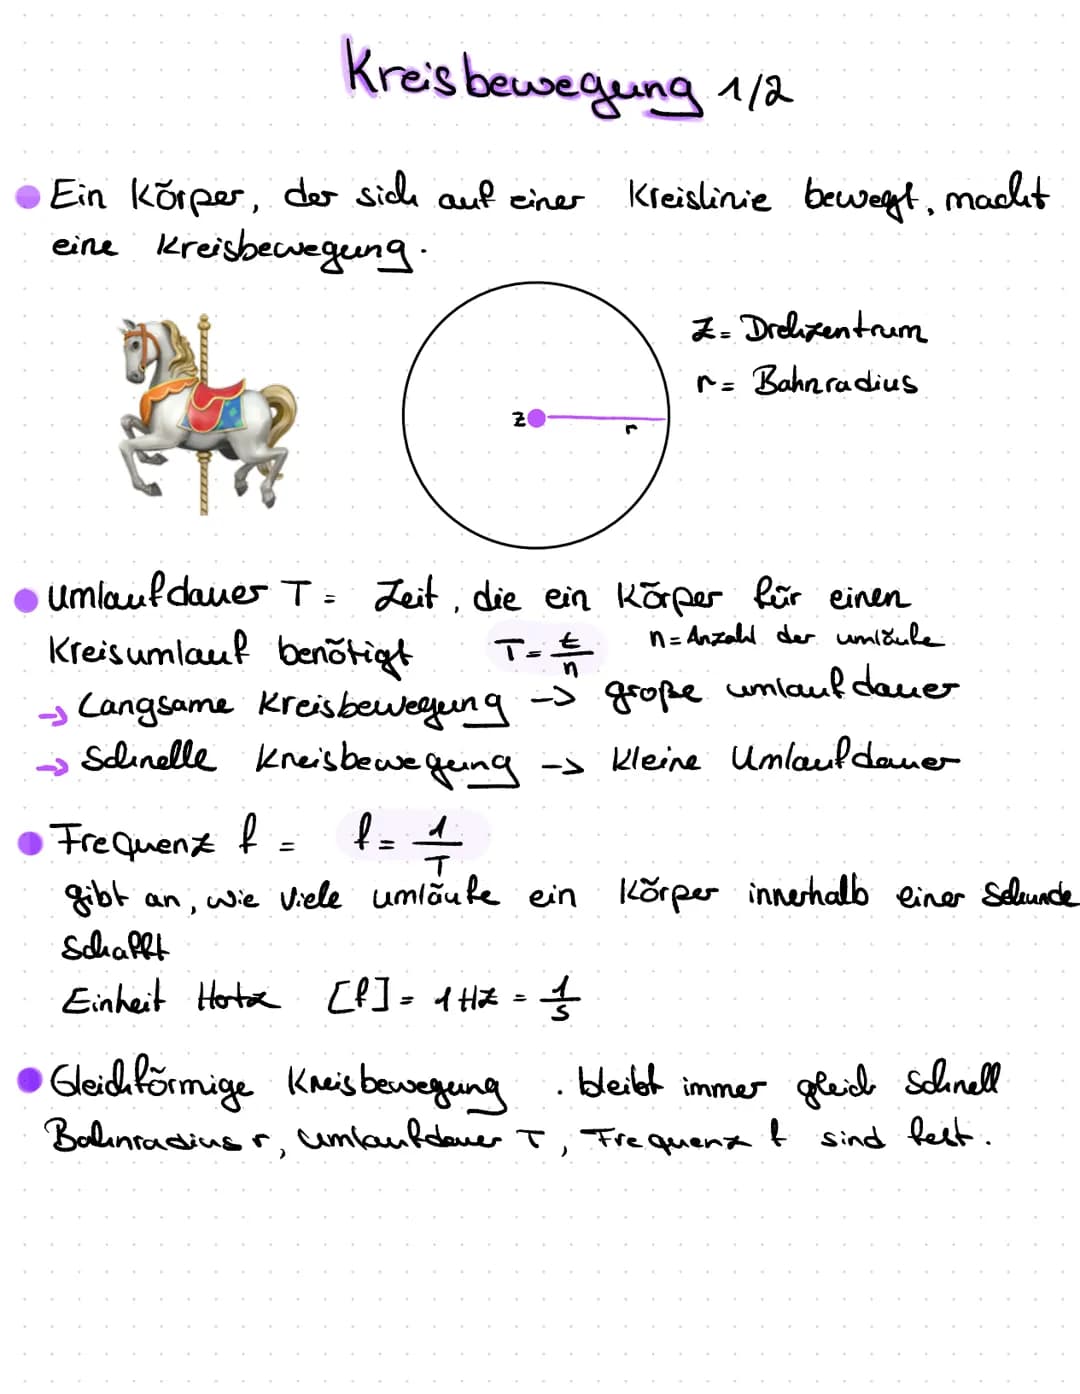 Kreisbewegung 1/2
Ein Körper, der sich auf einer Kreislinie bewegt, macht
eine Kreisbewegung.
Z = Drehzentrum
r = Bahnradius
Z
r
Umlaufdauer T = Zeit, die ein Körper für einen
Kreisumlauf benötigt T = t/n n = Anzahl der Umläufe
→ Langsame Kreisbewegung -> große Umlaufdauer
→ Schnelle Kreisbewegung -> kleine Umlaufdauer
Frequenz f = f = 1/T
gibt an, wie viele Umläufe ein Körper innerhalb einer Sekunde
schafft
Einheit Hertz [f] = 1 Hz = 1/s
Gleichförmige Kreisbewegung . bleibt immer gleich schnell
Bahnradius r, Umlaufdauer T, Frequenz f sind fest.